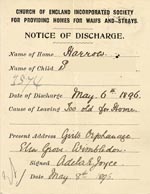 CHURCH OF ENGLAND INCORPORATED SOCIETY
FOR PROVIDING HOMES FOR WAIFS AND STRAYS.
NOTICE OF DISCHARGE.
Name of Home Harrow
Name of Child
Date of Discharge May 6th 1896.
Cause of Leaving Too old for Home
Present Address Girls Orphanage
Wimbledon
Signed Adela Joyce
Date May 8th